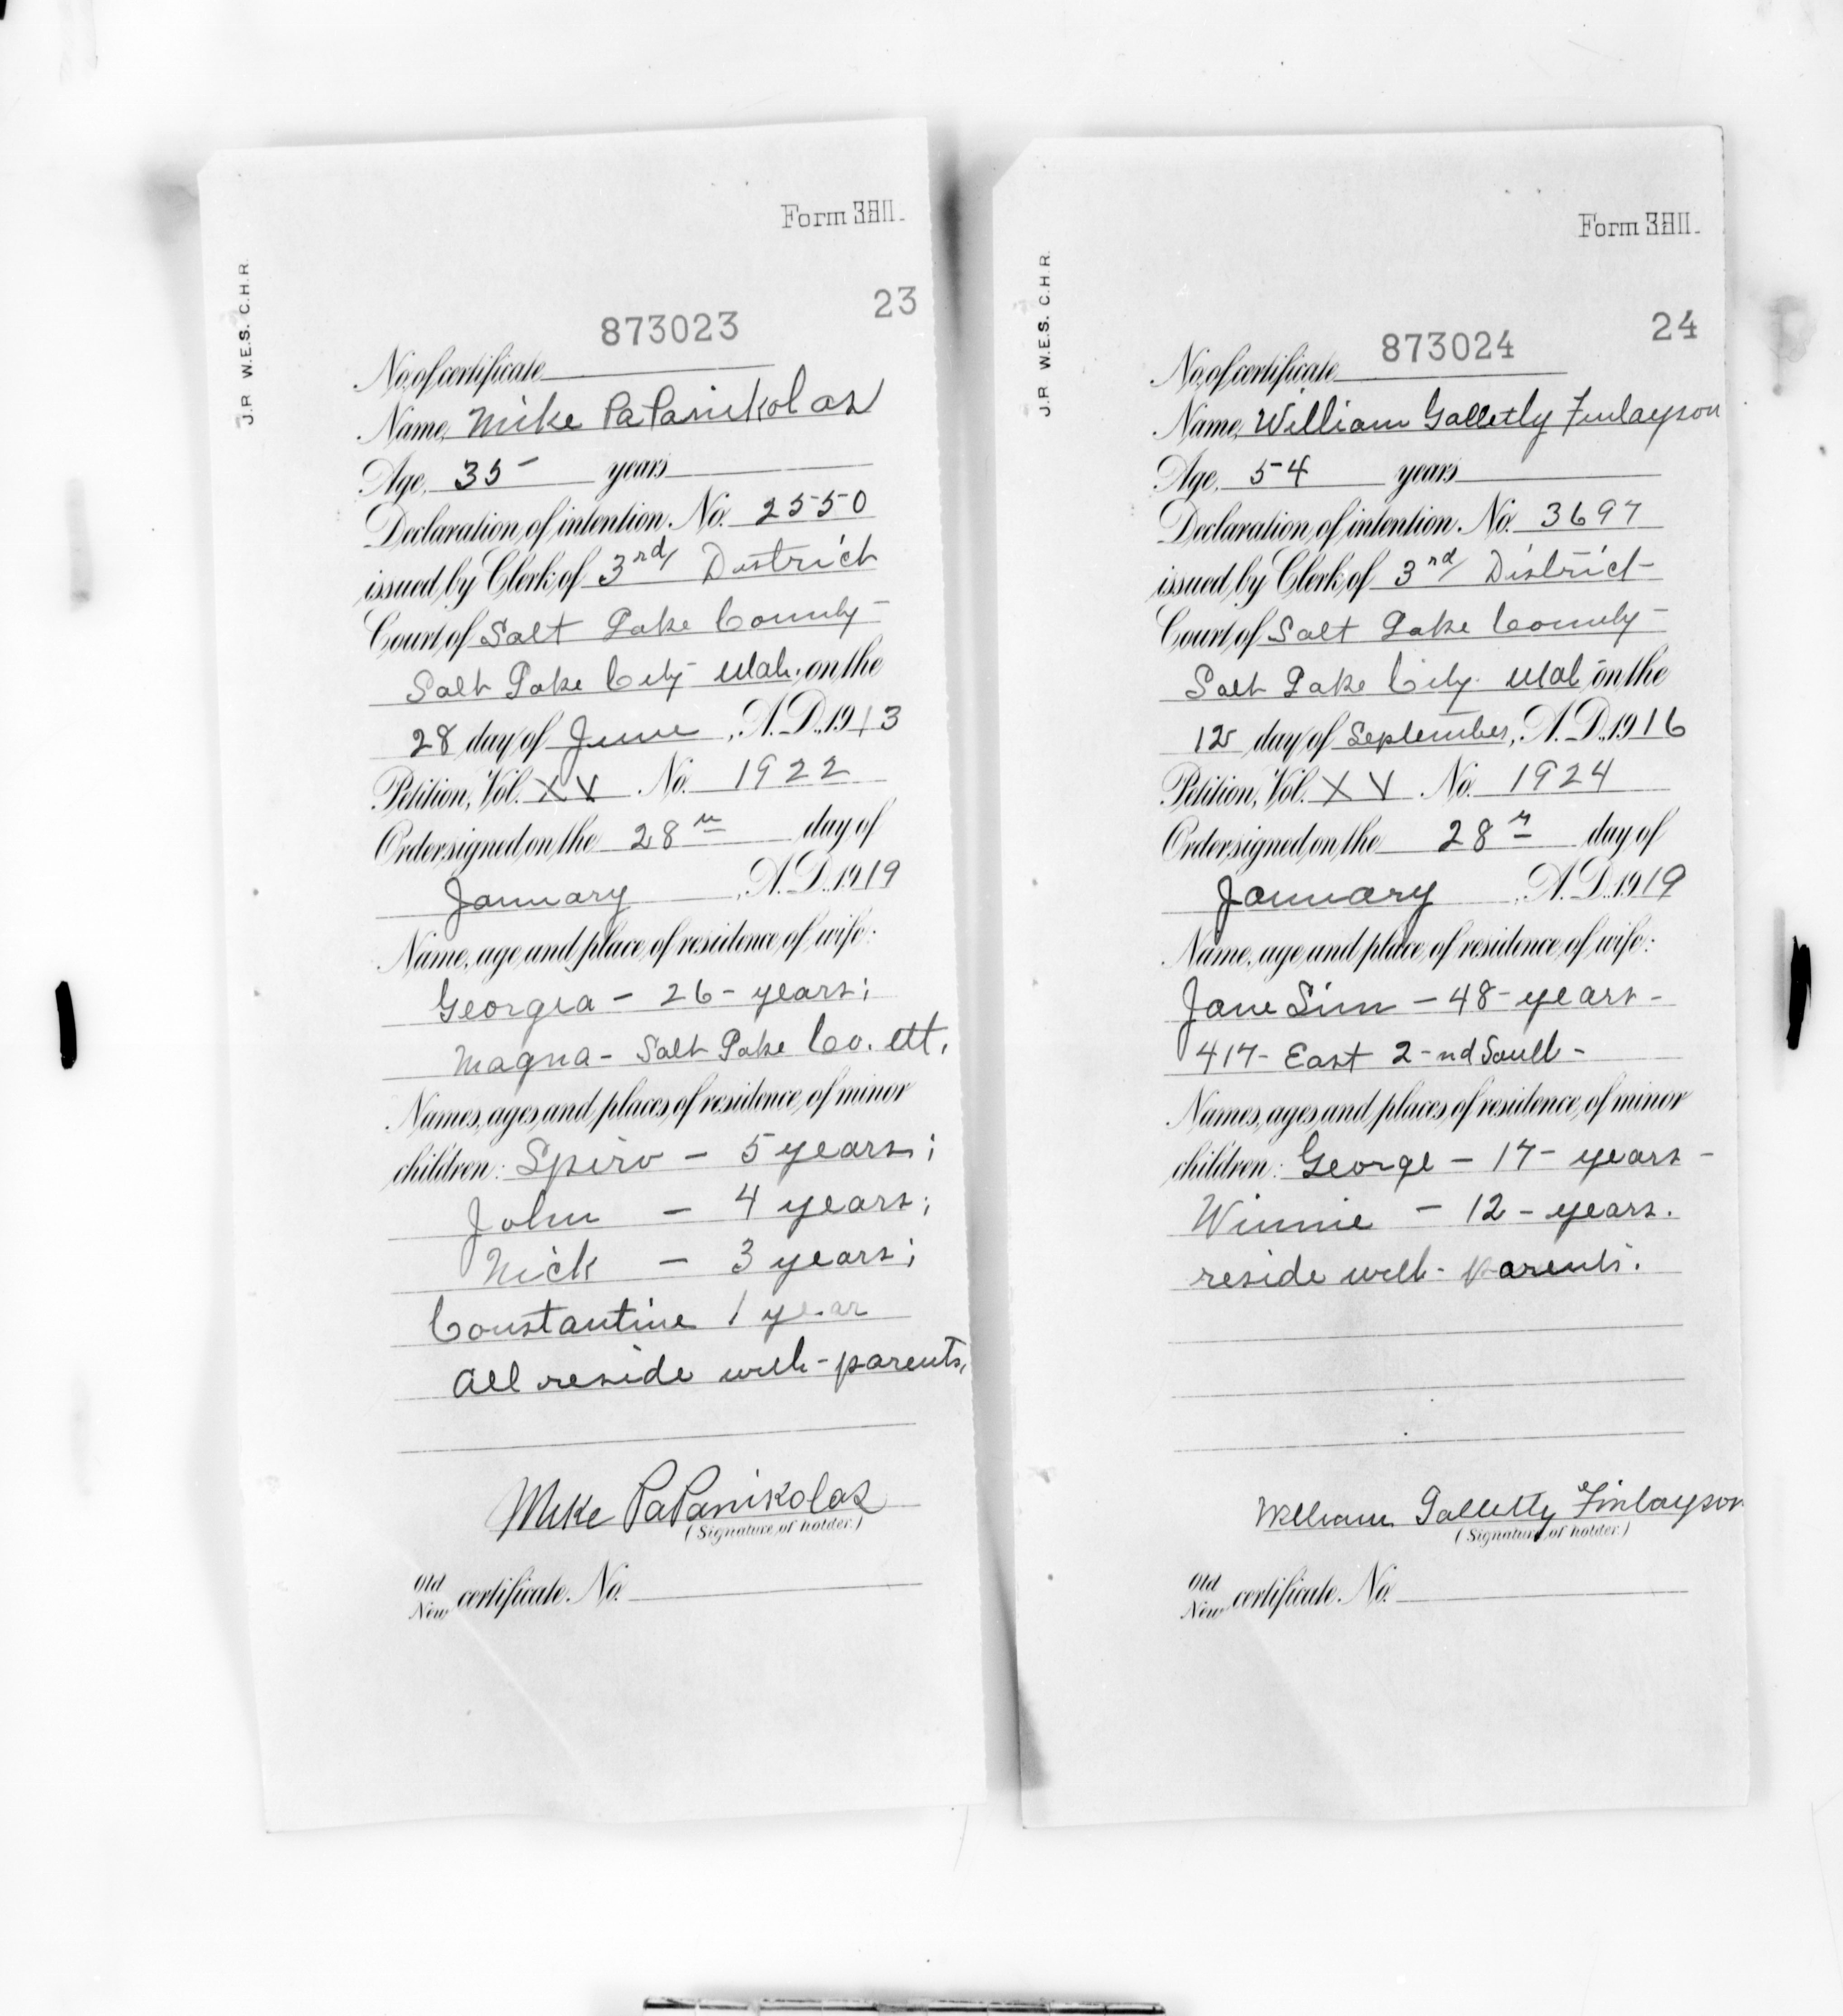 Form 3811.
J.R W.E.S. C.H.R.
23
873023
No. of certificate
Name, Mike PaPanikolas
Age, 35 - years
Declaration of intention. No. 2550
issued by Clerk of 3rd District
Court of Salt Lake County -
Salt Lake City Utah. on the
28 day of June, A.D. 1913
Petition, Vol. XV No. 1922
Order signed on the 28th day of
January, A.D. 1919
Name, age and place of residence of wife:
Georgia - 26 - years;
Magna - Salt Lake Co. Ut.
Names, ages and places of residence of minor
children: Spiro - 5 years;
John - 4 years;
Nick - 3 years;
Constantine 1 year
All reside with - parents,
Mike PaPanikolas
(Signature of holder.)
Old
New certificate. No.
Form 3811.
J.R W.E.S. C.H.R.
24
873024
No. of certificate
Name, William Galletly Finlayson
Age, 54 years
Declaration of intention. No. 3697
issued by Clerk of 3rd District -
Court of Salt Lake County -
Salt Lake City. Utah on the
12 day of September, A.D. 1916
Petition, Vol. XV No. 1924
Order signed on the 28th day of
January, A.D. 1919
Name, age and place of residence of wife:
Jane Sim - 48 - years -
417 - East 2 - nd South -
Names, ages and places of residence of minor
children: George - 17 - years -
Winnie - 12 - years.
reside with - parents.
William Galletly Finlayson
(Signature of holder.)
Old
New certificate. No.